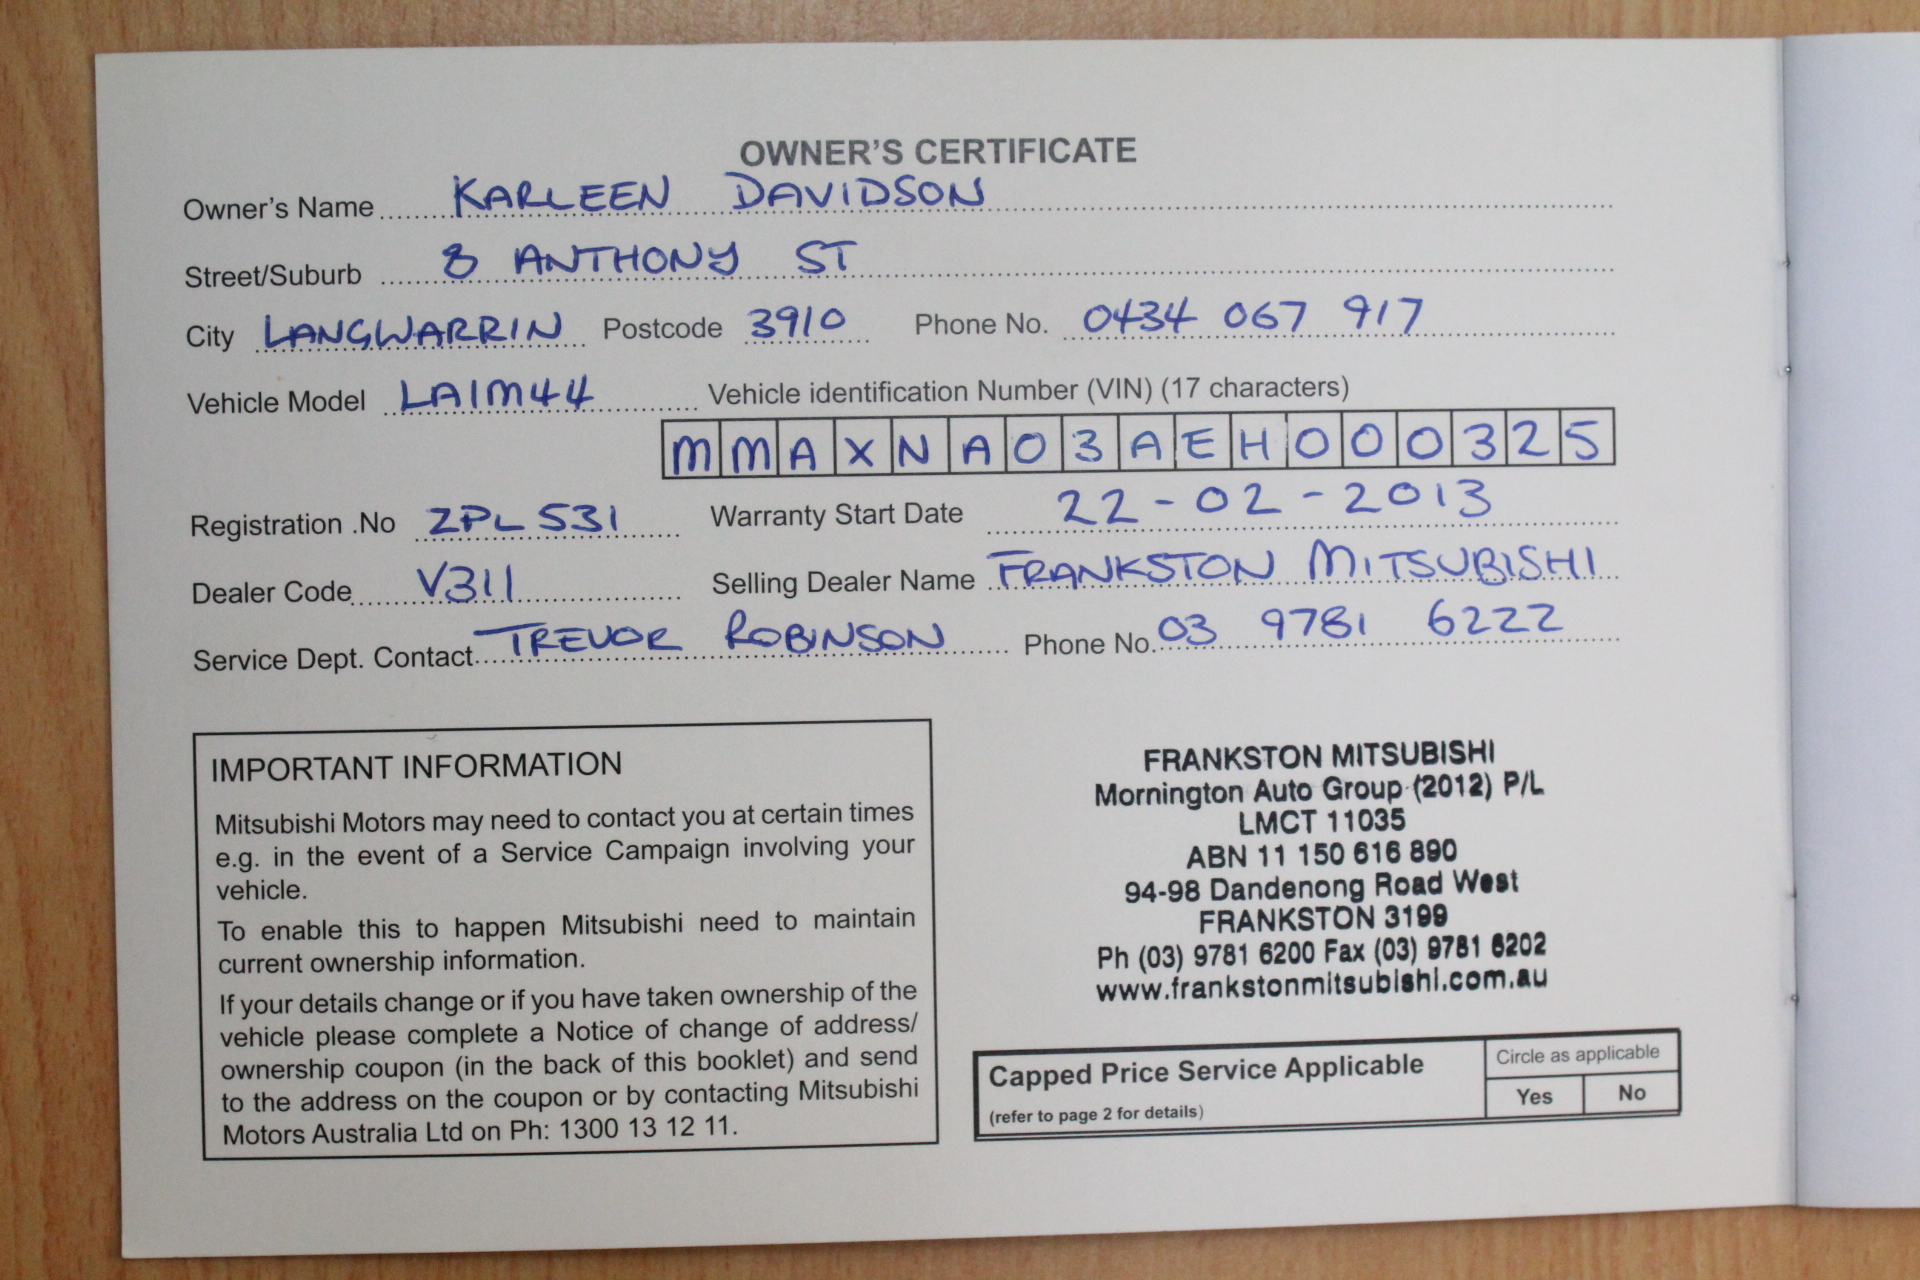 OWNER'S CERTIFICATE
Owner's Name KARLEEN DAVIDSON
Street/Suburb 8 ANTHONY ST
City LANGWARRIN Postcode 3910 Phone No. 0434 067 917
Vehicle Model LA1M44 Vehicle identification Number (VIN) (17 characters)
MMAXNA03AEH000325
Registration .No ZPL 531 Warranty Start Date 22-02-2013
Dealer Code V311 Selling Dealer Name FRANKSTON MITSUBISHI
Service Dept. Contact TREVOR ROBINSON Phone No. 03 9781 6222
IMPORTANT INFORMATION
Mitsubishi Motors may need to contact you at certain times
e.g. in the event of a Service Campaign involving your
vehicle.
To enable this to happen Mitsubishi need to maintain
current ownership information.
If your details change or if you have taken ownership of the
vehicle please complete a Notice of change of address/
ownership coupon (in the back of this booklet) and send
to the address on the coupon or by contacting Mitsubishi
Motors Australia Ltd on Ph: 1300 13 12 11.
FRANKSTON MITSUBISHI
Mornington Auto Group (2012) P/L
LMCT 11035
ABN 11 150 616 890
94-98 Dandenong Road West
FRANKSTON 3199
Ph (03) 9781 6200 Fax (03) 9781 6202
www.frankstonmitsubishi.com.au
Capped Price Service Applicable
(refer to page 2 for details)
Circle as applicable
Yes No